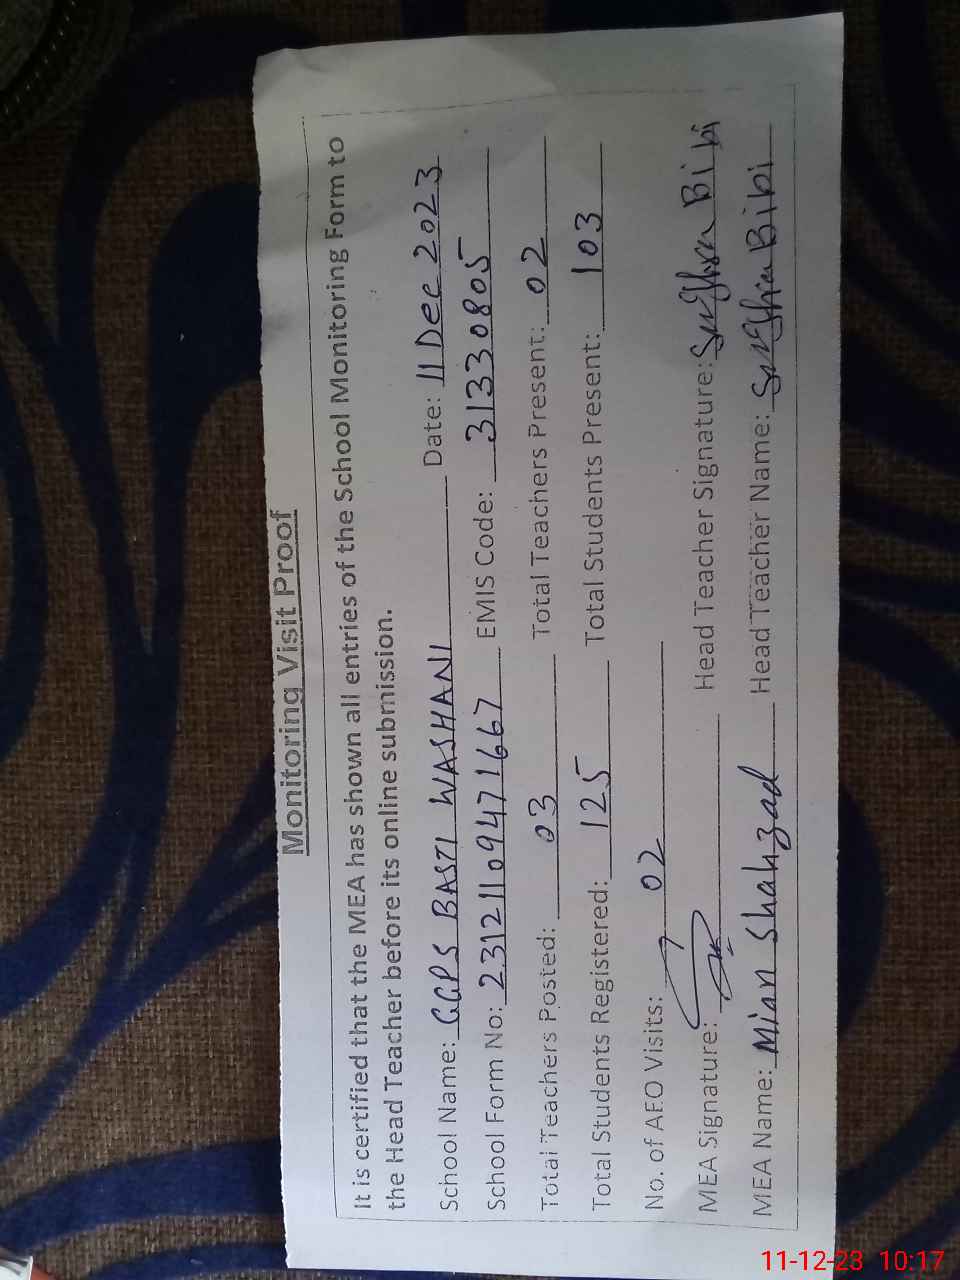 Monitoring Visit Proof
It is certified that the MEA has shown all entries of the School Monitoring Form to
the Head Teacher before its online submission.
School Name: GGPS BASTI WASHANI Date: 11 Dec 2023
School Form No: 23121109471667 EMIS Code: 31330805
Total Teachers Posted: 03 Total Teachers Present: 02
Total Students Registered: 125 Total Students Present: 103
No. of AEO Visits: 02
MEA Signature: Head Teacher Signature: Bibi
MEA Name: Mian Shahzad Head Teacher Name: Bibi
11-12-23 10:17